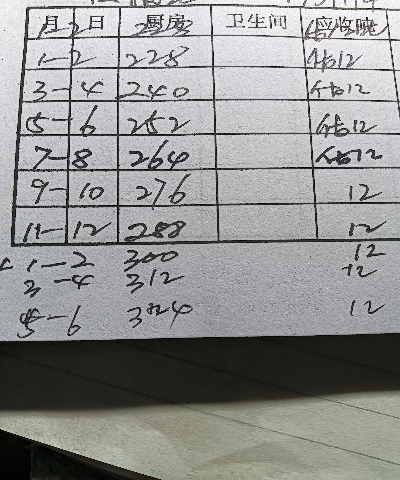 月 日 厨房 卫生间 应收
1-2 228 估12
3-4 240 估12
5-6 252 估12
7-8 264 估12
9-10 276 12
11-12 288 12
1-2 300 12
3-4 312 12
5-6 324 12